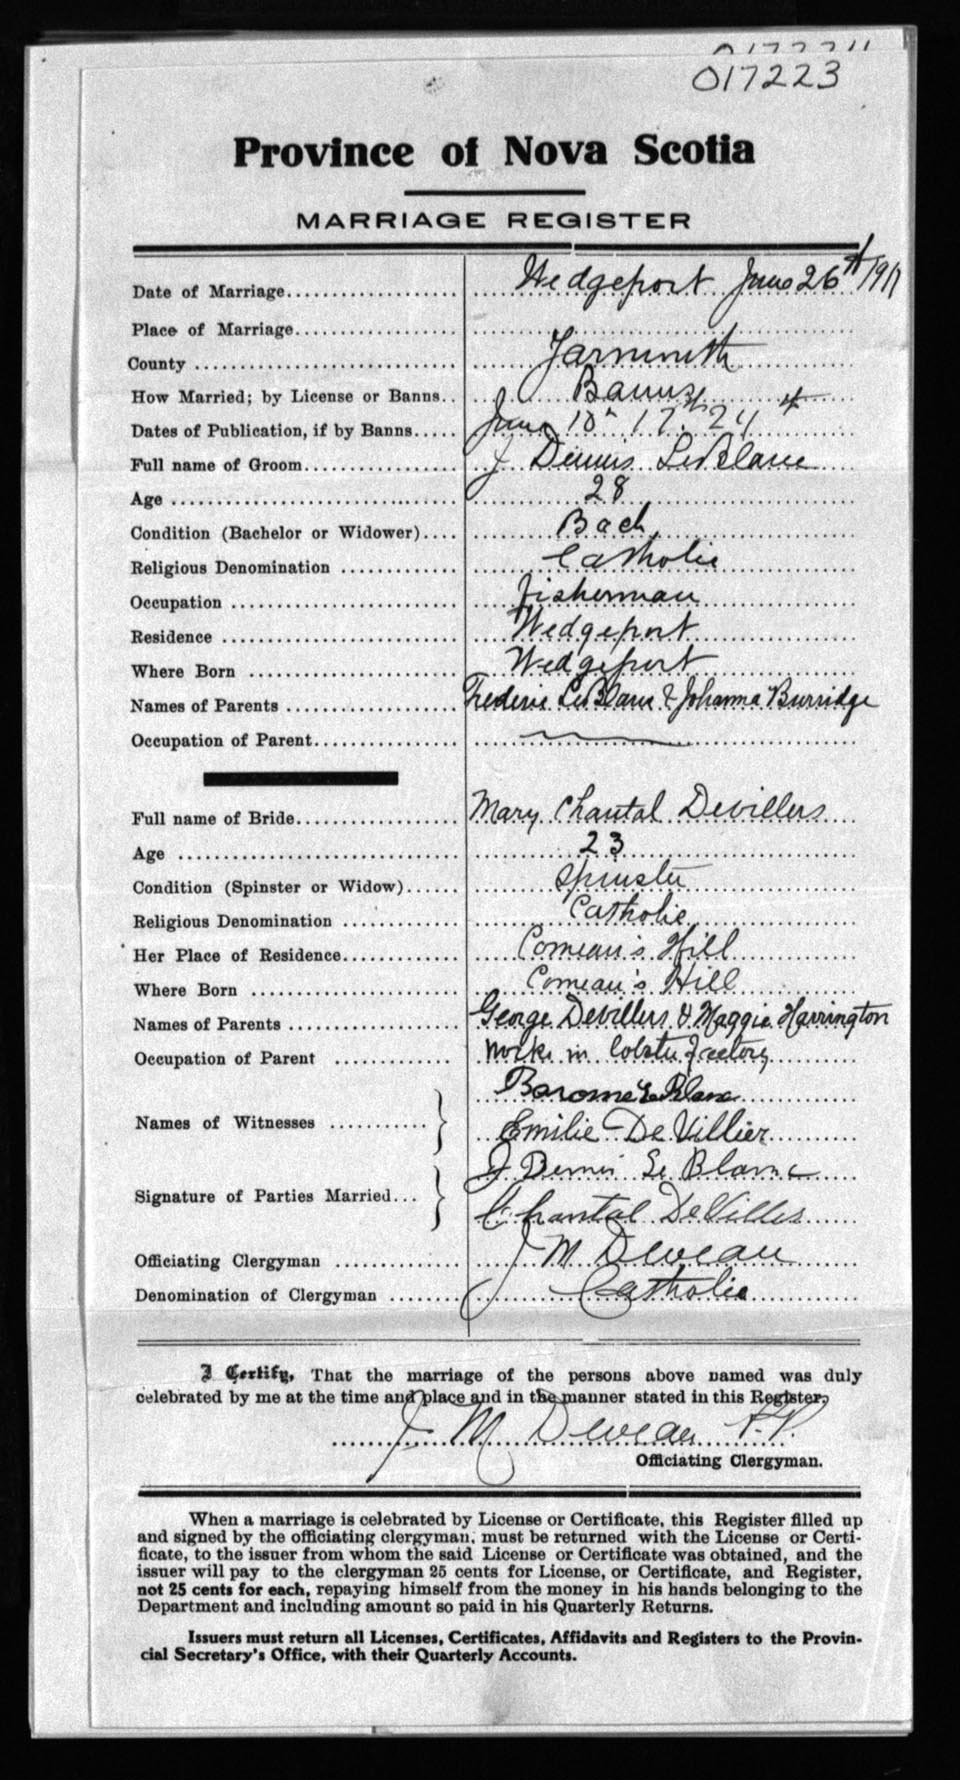 017223
Province of Nova Scotia
MARRIAGE REGISTER
Date of Marriage Wedgeport June 26th 1917
Place of Marriage
County Yarmouth
How Married; by License or Banns Banns
Dates of Publication, if by Banns June 10th 17th 24th
Full name of Groom J Dennis LeBlanc
Age 28
Condition (Bachelor or Widower) Bach
Religious Denomination Catholic
Occupation fisherman
Residence Wedgeport
Where Born Wedgeport
Names of Parents Frederic LeBlanc & Johanna Burridge
Occupation of Parent
Full name of Bride Mary Chantal Devillers
Age 23
Condition (Spinster or Widow) Spinster
Religious Denomination Catholic
Her Place of Residence Comeau's Hill
Where Born Comeau's Hill
Names of Parents George Devillers & Maggie Harrington
Occupation of Parent Works in lobster factory
Names of Witnesses LeBlanc
Emilie DeVillier
Signature of Parties Married J Dennis Le Blanc
Chantal DeVilles
Officiating Clergyman J M Deveau
Denomination of Clergyman Catholic
I Certify, That the marriage of the persons above named was duly
celebrated by me at the time and place and in the manner stated in this Register,
J M Deveau P.P.
Officiating Clergyman.
When a marriage is celebrated by License or Certificate, this Register filled up
and signed by the officiating clergyman, must be returned with the License or Certi-
ficate, to the issuer from whom the said License or Certificate was obtained, and the
issuer will pay to the clergyman 25 cents for License, or Certificate, and Register,
not 25 cents for each, repaying himself from the money in his hands belonging to the
Department and including amount so paid in his Quarterly Returns.
Issuers must return all Licenses, Certificates, Affidavits and Registers to the Provin-
cial Secretary's Office, with their Quarterly Accounts.